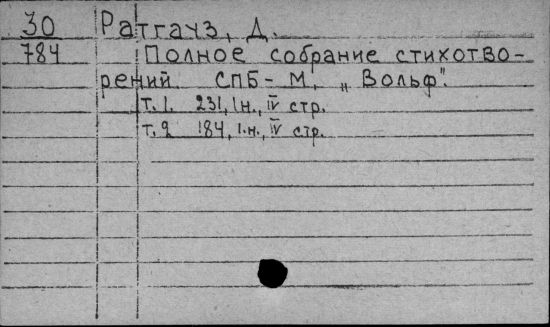 30 Ратгауз, Д.
784 Полное собрание стихотво-
рений. СПБ - М, „Вольф".
т. 1. 231, 1 н., IV стр.
т. 2 184, 1. н., IV стр.